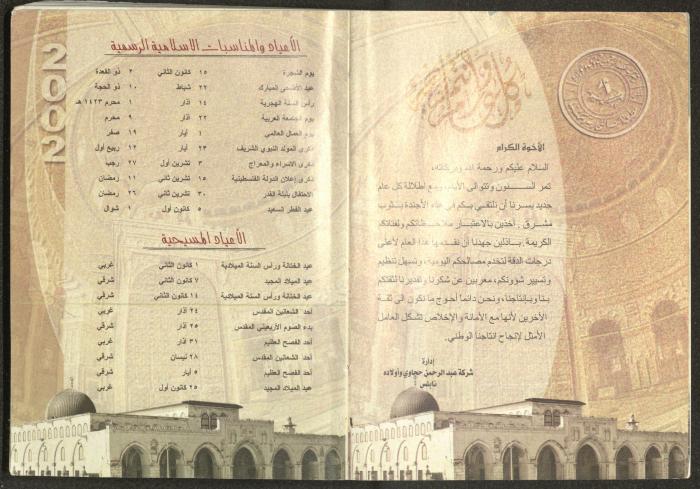 وكل عام وأنتم بخير
الأخوة الكرام
السلام عليكم ورحمة الله وبركاته،
تمر الســـنون وتتوالى الأيام، ومع اطلالة كل عام
جديد يسرنا أن نلتقي بكم في هذه الأجندة بـثـوب
مشرق . آخذين بالاعتبـار ملاحـظاتكم ولفتاتكم
الكريمة. بـاذلين جهدنا أن نقدمـها هذا العام لأعلى
درجات الدقة لتخدم مصالحكم اليومية، وتسهل تنظيم
وتسيير شؤونكم، معربين عن شكرنا وتقديرنا لثقتكم
بـنا وبـانتاجنا، ونحن دائما أحوج ما نكون الى ثقـة
الآخرين لأنها مع الأمانة والإخلاص تشكل العامل
الأمثل لإنجاح انتاجنا الوطني.
إدارة
شركة عبد الرحمن حجاوي وأولاده
نابلس
2002
الأعياد والمناسبات الاسلامية الرسمية
يوم الشجرة ١٥ كانون الثاني ٢ ذو القعدة
عيد الأضحى المبارك ٢٢ شباط ١٠ ذو الحجة
رأس السنة الهجرية ١٤ آذار ١ محرم ١٤٢٣ هـ
يوم الجامعة العربية ٢٢ آذار ٩ محرم
يوم العمال العالمي ١ أيار ١٩ صفر
ذكرى المولد النبوي الشريف ٢٣ أيار ١٢ ربيع أول
ذكرى الاسراء والمعراج ٣ تشرين أول ٢٧ رجب
ذكرى إعلان الدولة الفلسطينية ١٥ تشرين ثاني ١١ رمضان
الاحتفال بليلة القدر ٣٠ تشرين ثاني ٢٦ رمضان
عيد الفطر السعيد ٥ كانون أول ١ شوال
الأعياد المسيحية
عيد الختانة ورأس السنة الميلادية ١ كانون الثاني غربي
عيد الميلاد المجيد ٧ كانون الثاني شرقي
عيد الختانة ورأس السنة الميلادية ١٤ كانون الثاني شرقي
أحد الشعانين المقدس ٢٤ آذار غربي
بدء الصوم الأربعيني المقدس ٢٥ آذار شرقي
أحد الفصح العظيم ٣١ آذار غربي
أحد الشعانين المقدس ٢٨ نيسان شرقي
أحد الفصح العظيم ٥ أيار شرقي
عيد الميلاد المجيد ٢٥ كانون أول غربي